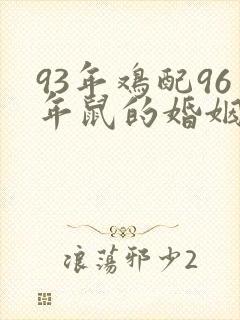 93年鸡配96
年鼠的婚姻
浪荡邪少2